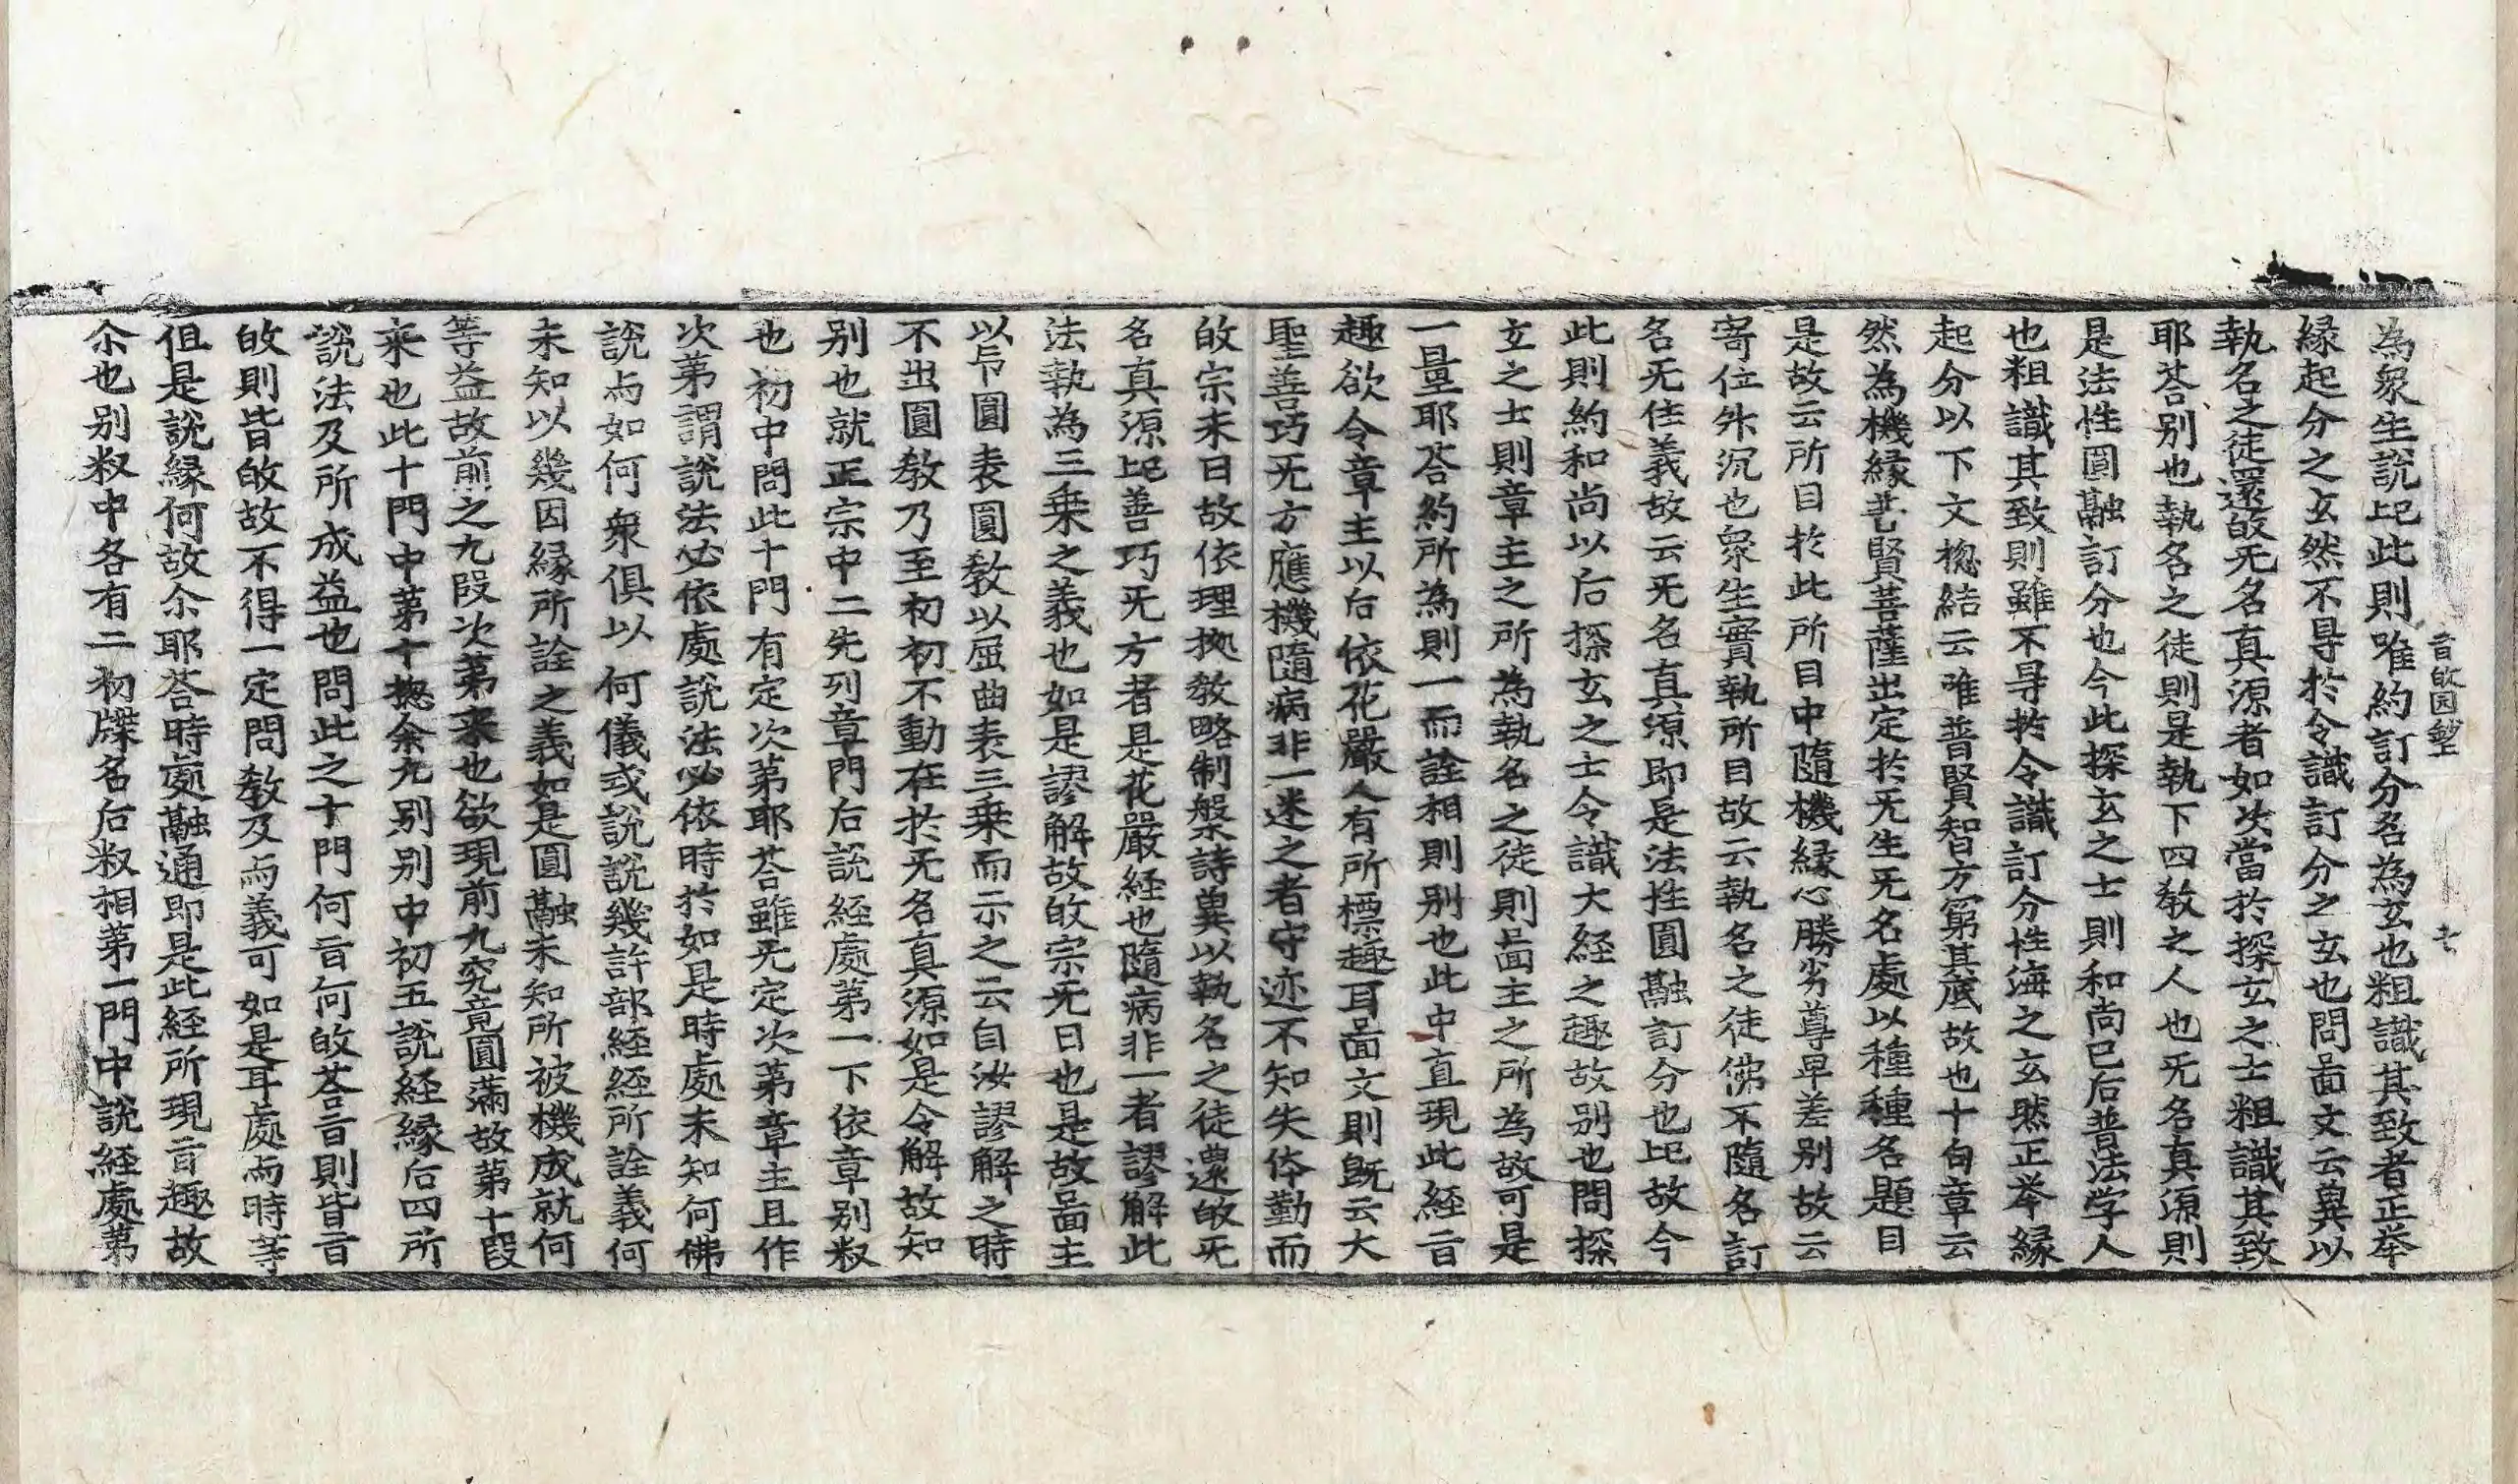 旨皈囙鈔上
七
為衆生說也此則唯約訂分名為玄也粗識其致者正举
縁起分之玄然不㝵扵令識訂分之玄也問啚文云兾以
執名之徒還皈旡名真源者如次當扵探玄之士粗識其致
耶荅别也執名之徒則是執下四教之人也旡名真源則
是法性圓融訂分也今此探玄之士則和尚已后普法学人
也粗識其致則雖不㝵扵令識訂分性海之玄㸐正举縁
起分以下文揔結云唯普賢智方窮其底故也十句章云
然為機縁䒭賢菩薩出定扵旡生旡名處以種種名題目
是故云所目扵此所目中隨機縁心勝劣尊卑差别故云
寄位升沉也衆生實執所目故云執名之徒佛不隨名訂
名旡住義故云旡名真源即是法性圓融訂分也也故今
此則約和尚以后探玄之士令識大経之趣故别也問探
玄之士則章主之所為執名之徒則啚主之所為故可是
一量耶荅約所為則一而詮相則别也此中直現此経旨
趣欲令章主以后依花嚴人有所標趣耳啚文則既云大
聖善巧旡方應機隨病非一迷之者守迹不知失体勤而
皈宗未日故依理拠教略制槃詩兾以執名之徒還皈旡
名真源也善巧旡方者是花嚴経也隨病非一者謬解此
法執為三乗之義也如是謬解故皈宗旡日也是故啚主
以卬圓表圓教以屈曲表三乗而示之云自汝謬解之時
不出圓教乃至初初不動在扵旡名真源如是令解故知
别也就正宗中二先列章門后說経處第一下依章别䆁
也初中問此十門有定次第耶荅雖旡定次第章主且作
次第謂說法必依處說法必依時扵如是時處未知何佛
說而如何衆俱以何儀或說說幾許部経経所詮義何
未知以幾因縁所詮之義如是圓融未知所被機成就何
等益故前之九段次第来也欲現前九究竟圓滿故第十段
来也此十門中第十揔余九别别中初五說経縁后四所
說法及所成益也問此之十門何旨何皈荅旨則皆旨
皈則皆皈故不得一定問教及而義可如是耳處而時等
但是說縁何故尒耶荅時處融通即是此経所現旨趣故
尒也别䆁中各有二初牒名后䆁相第一門中說経處第